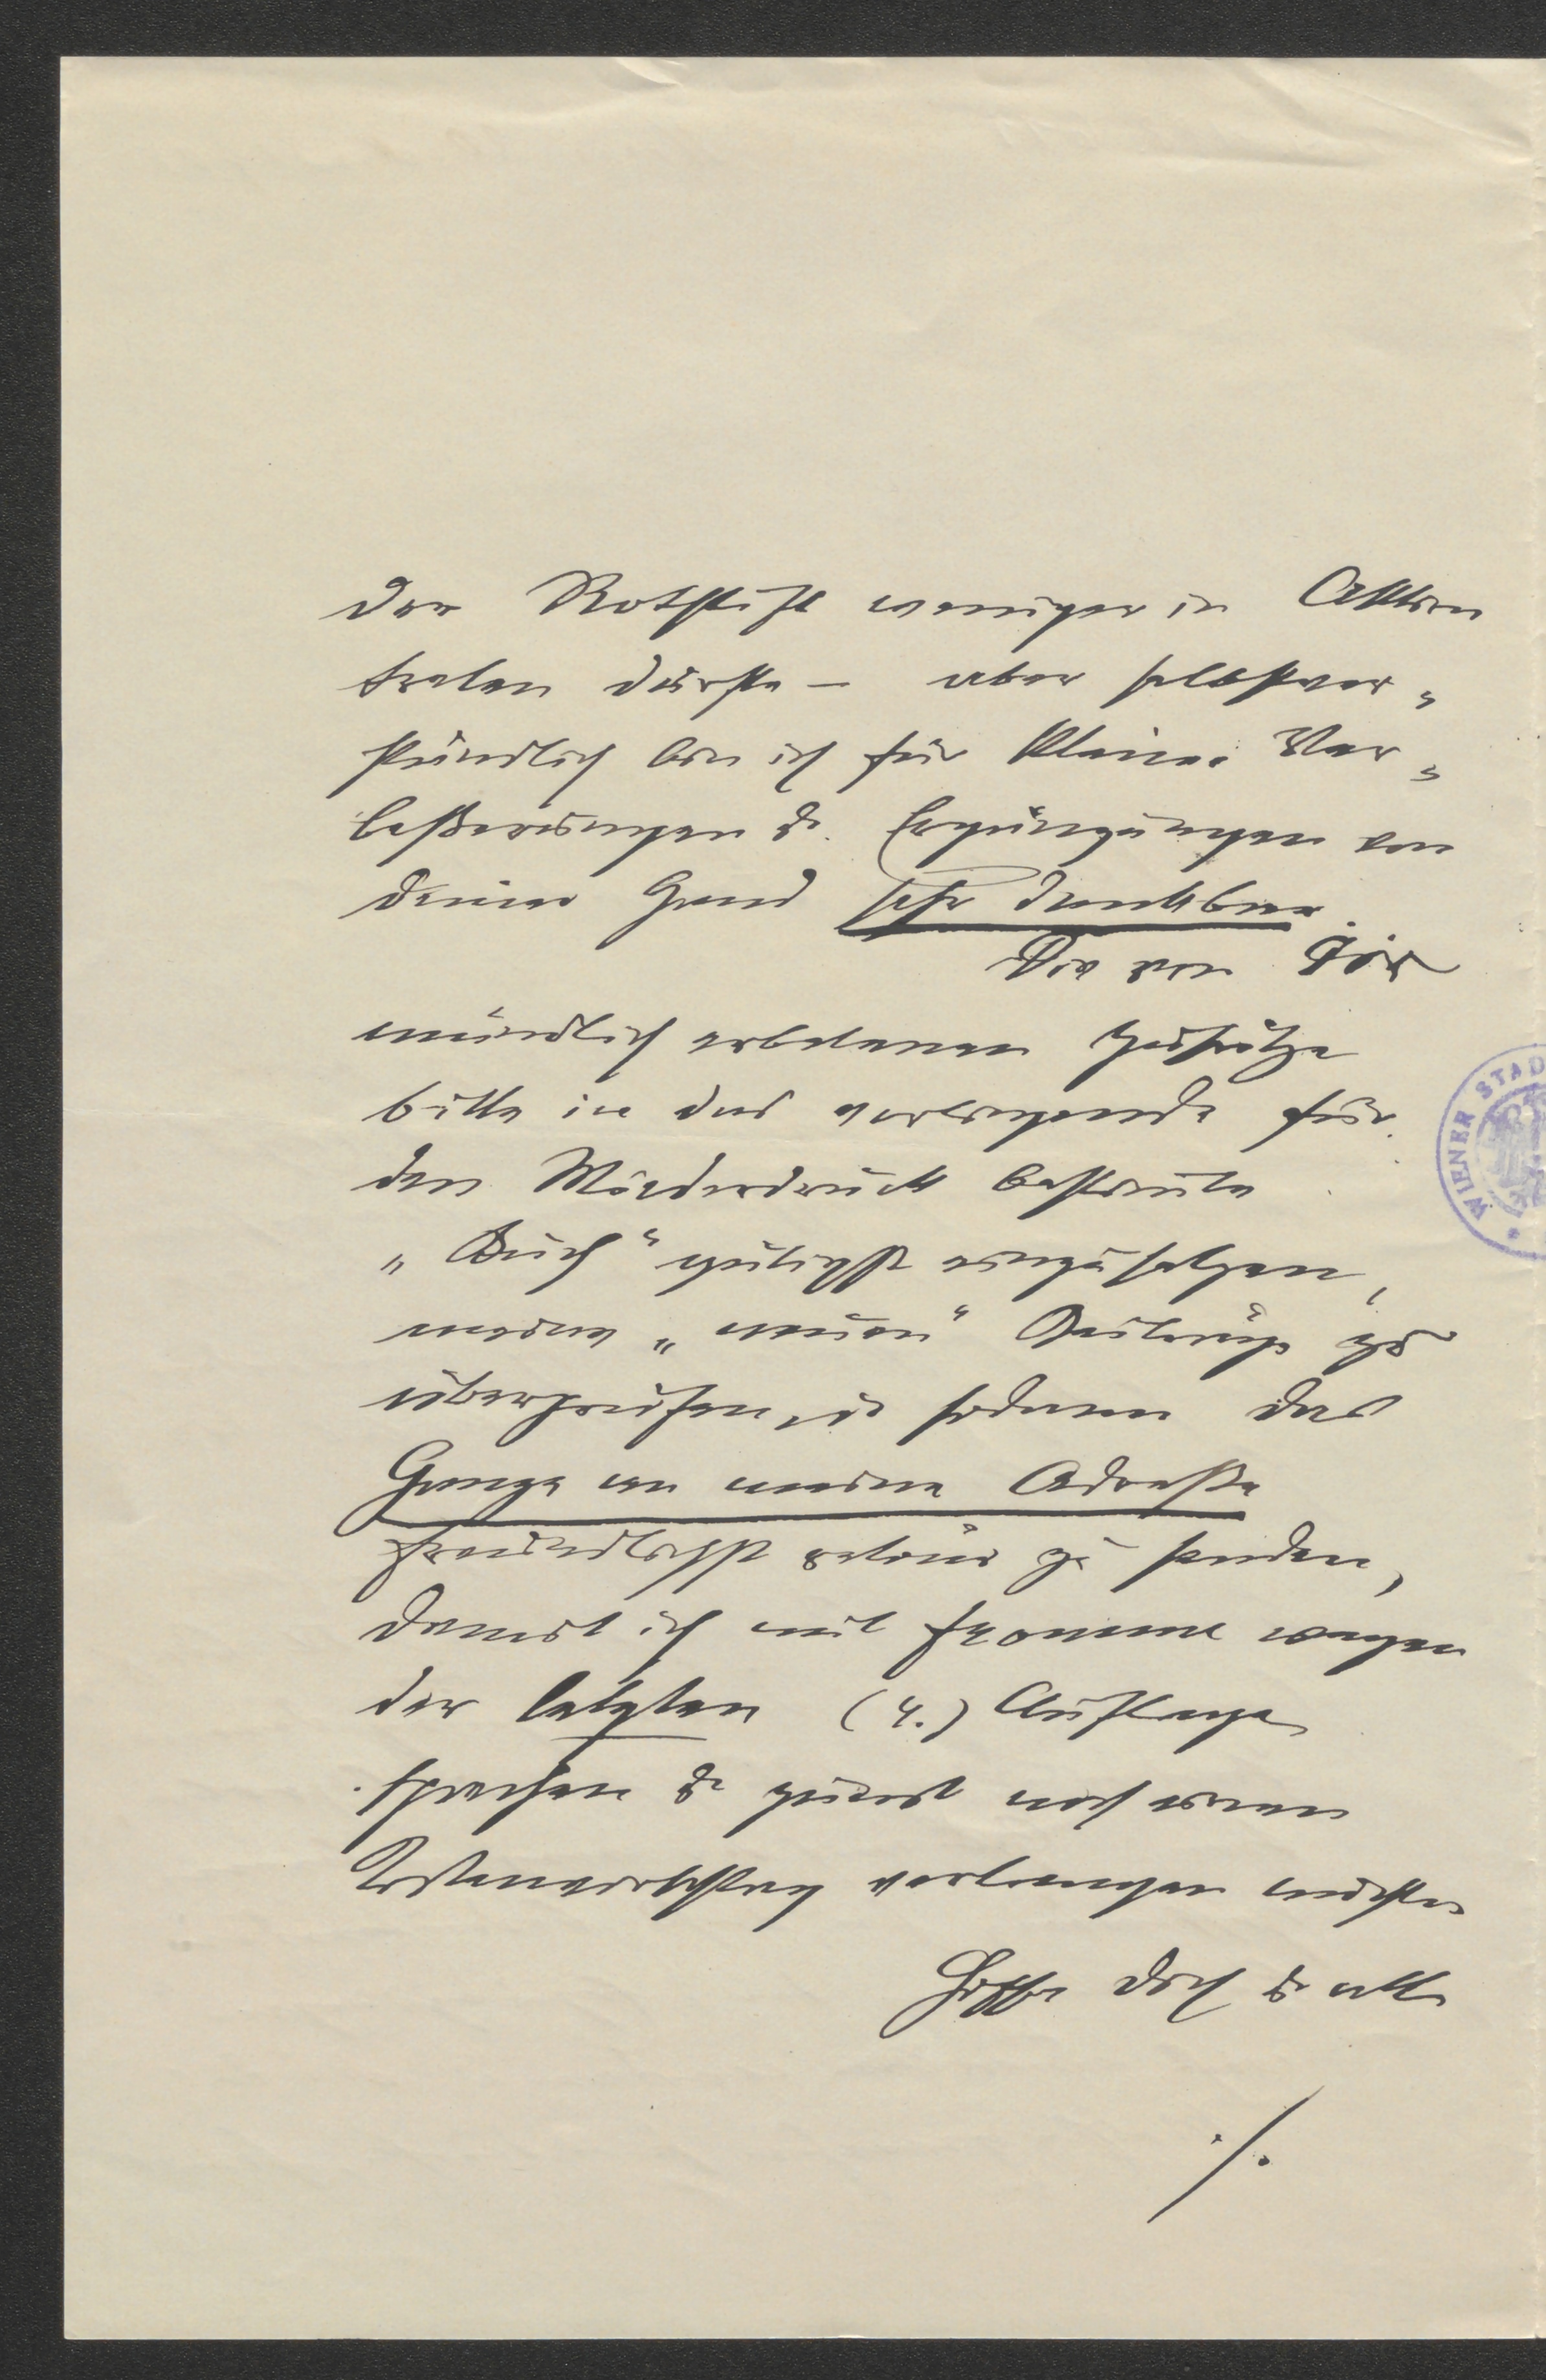 der Rothstift weniger in Aktion
treten dürfte — aber selbstver„
ständlich bin ich für kleine Ver„
beßerungen & Ergänzungen von
Deiner Hand sehr dankbar.
Die von Dir
mündlich erbetenen Zusätze
bitte in das vorliegende für
den Wiederdruck bestimmte
„Buch“ gütigst einzusetzen,
meine „neuen“ Beiträge zu
überprüfen, u sodann das
Ganze an meine Adreße
freundlichst retour zu senden,
damit ich mit Fromme wegen
der letzten (4.) Auflage
sprechen & zuerst noch einen
Kostenvorschlag verlangen möchte
Hoffe Dich & alle
./.
WIENER STAD